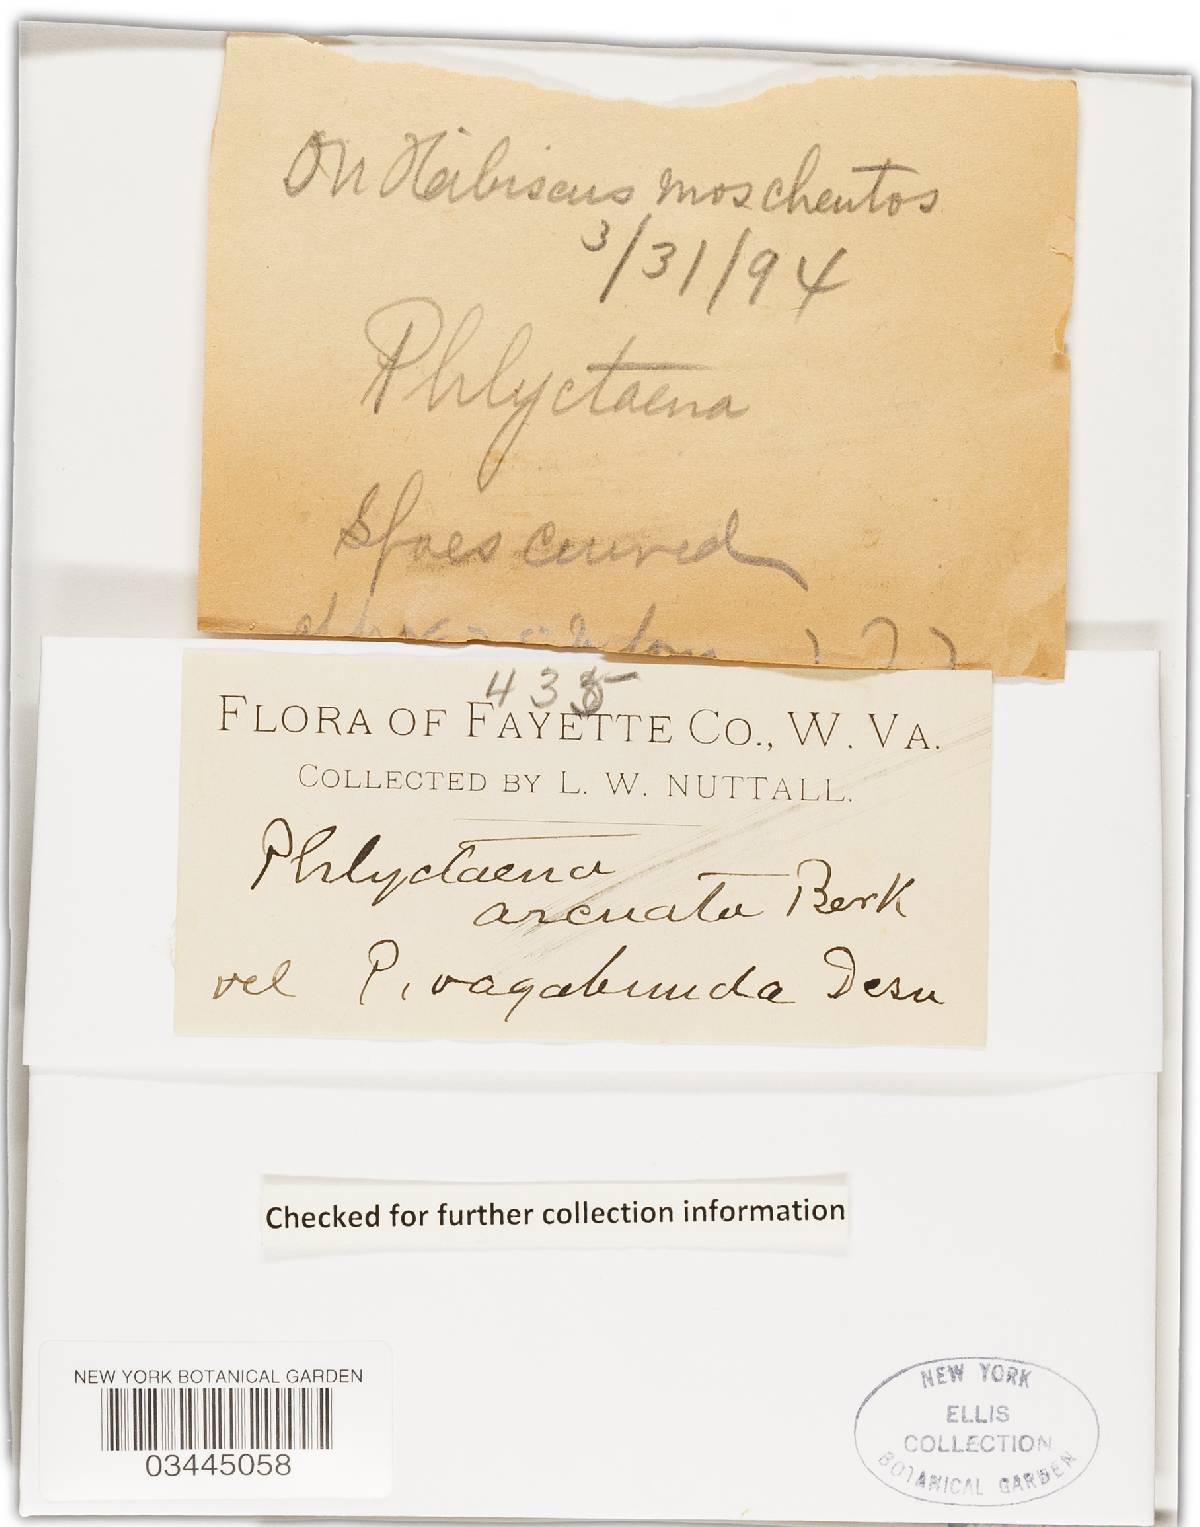 On Heibiscus moscheutos
3/31/94
Phlyctaena
Spoes curved
435
FLORA OF FAYETTE CO., W. VA.
COLLECTED BY L. W. NUTTALL.
Phlyctaena
arcuata Berk
vel P. vagabunda Desm
Checked for further collection information
NEW YORK BOTANICAL GARDEN
03445058
NEW YORK
ELLIS
COLLECTION
BOTANICAL GARDEN